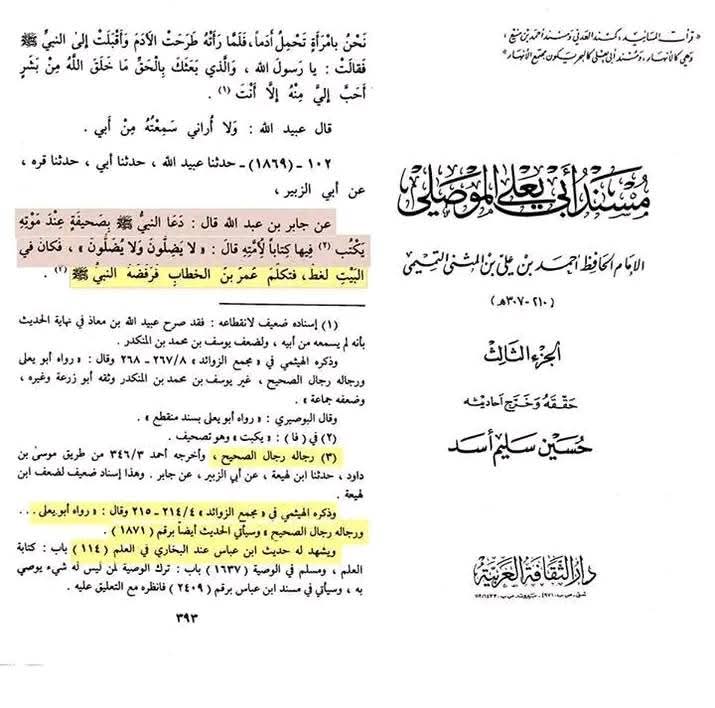 « قرأت المسانيد ، كمسند العدني ومسند أحمد بن منيع ؛
وهي كالأنهار ، ومسند أبي يعلى كالبحر يكون مجتمع الأنهار »
مسند أبي يعلى الموصلي
الإمام الحافظ أحمد بن علي بن المثنى التميمي
( ٢١٠ - ٣٠٧ هـ )
الجزء الثالث
حققه وخرج أحاديثه
حسين سليم أسد
دار الثقافة العربية
نَحْنُ بِامْرَأَةٍ تَحْمِلُ أَدَماً، فَلَمَّا رَأَتْهُ طَرَحَتْ الأَدَمَ وَأَقْبَلَتْ إلى النبيِّ ﷺ
فَقَالَتْ : يا رسولَ الله ، وَالَّذي بَعَثَكَ بِالْحَقِّ مَا خَلَقَ اللَّهُ مِنْ بَشَرٍ
أَحَبَّ إليَّ مِنْهُ إلَّا أَنْتَ (١) .
قال عبيد الله : وَلا أُراني سَمِعْتُهُ مِنْ أَبي .
١٠٢ - (١٨٦٩) - حدثنا عبيد الله ، حدثنا أبي ، حدثنا قرة ،
عن أبي الزبير ،
عن جابر بن عبد الله قال : دَعَا النبيُّ ﷺ بِصَحيفَةٍ عِنْدَ مَوْتِهِ
يَكْتُب (٢) فِيها كِتاباً لِأُمَّتِهِ قالَ : « لا يَضِلُّونَ وَلا يُضَلُّونَ » ، فَكانَ في
البَيْتِ لَغَطٌ، فَتَكَلَّمَ عُمَرُ بنُ الخطابِ فَرَفَضَهُ النبيُّ ﷺ (٣) .
(١) إسناده ضعيف لانقطاعه : فقد صرح عبيد الله بن معاذ في نهاية الحديث
بأنه لم يسمعه من أبيه ، ولضعف يوسف بن محمد بن المنكدر .
وذكره الهيثمي في « مجمع الزوائد » ٢٦٧/٨ - ٢٦٨ وقال : « رواه أبو يعلى
ورجاله رجال الصحيح ، غير يوسف بن محمد بن المنكدر وثقه أبو زرعة وغيره ،
وضعفه جماعة » .
وقال البوصيري : « رواه أبو يعلى بسند منقطع » .
(٢) في ( فا ) : « يكبت » وهو تصحيف .
(٣) رجاله رجال الصحيح ، وأخرجه أحمد ٣٤٦/٣ من طريق موسى بن
داود ، حدثنا ابن لهيعة ، عن أبي الزبير ، عن جابر . وهذا إسناد ضعيف لضعف ابن
لهيعة .
وذكره الهيثمي في « مجمع الزوائد » ٢١٤/٤ - ٢١٥ وقال : « رواه أبو يعلى . . .
ورجاله رجال الصحيح » وسيأتي الحديث أيضاً برقم ( ١٨٧١ ) .
ويشهد له حديث ابن عباس عند البخاري في العلم ( ١١٤ ) باب : كتابة
العلم ، ومسلم في الوصية ( ١٦٣٧ ) باب : ترك الوصية لمن ليس له شيء يوصي
به ، وسيأتي في مسند ابن عباس برقم ( ٢٤٠٩ ) فانظره مع التعليق عليه .
٣٩٣